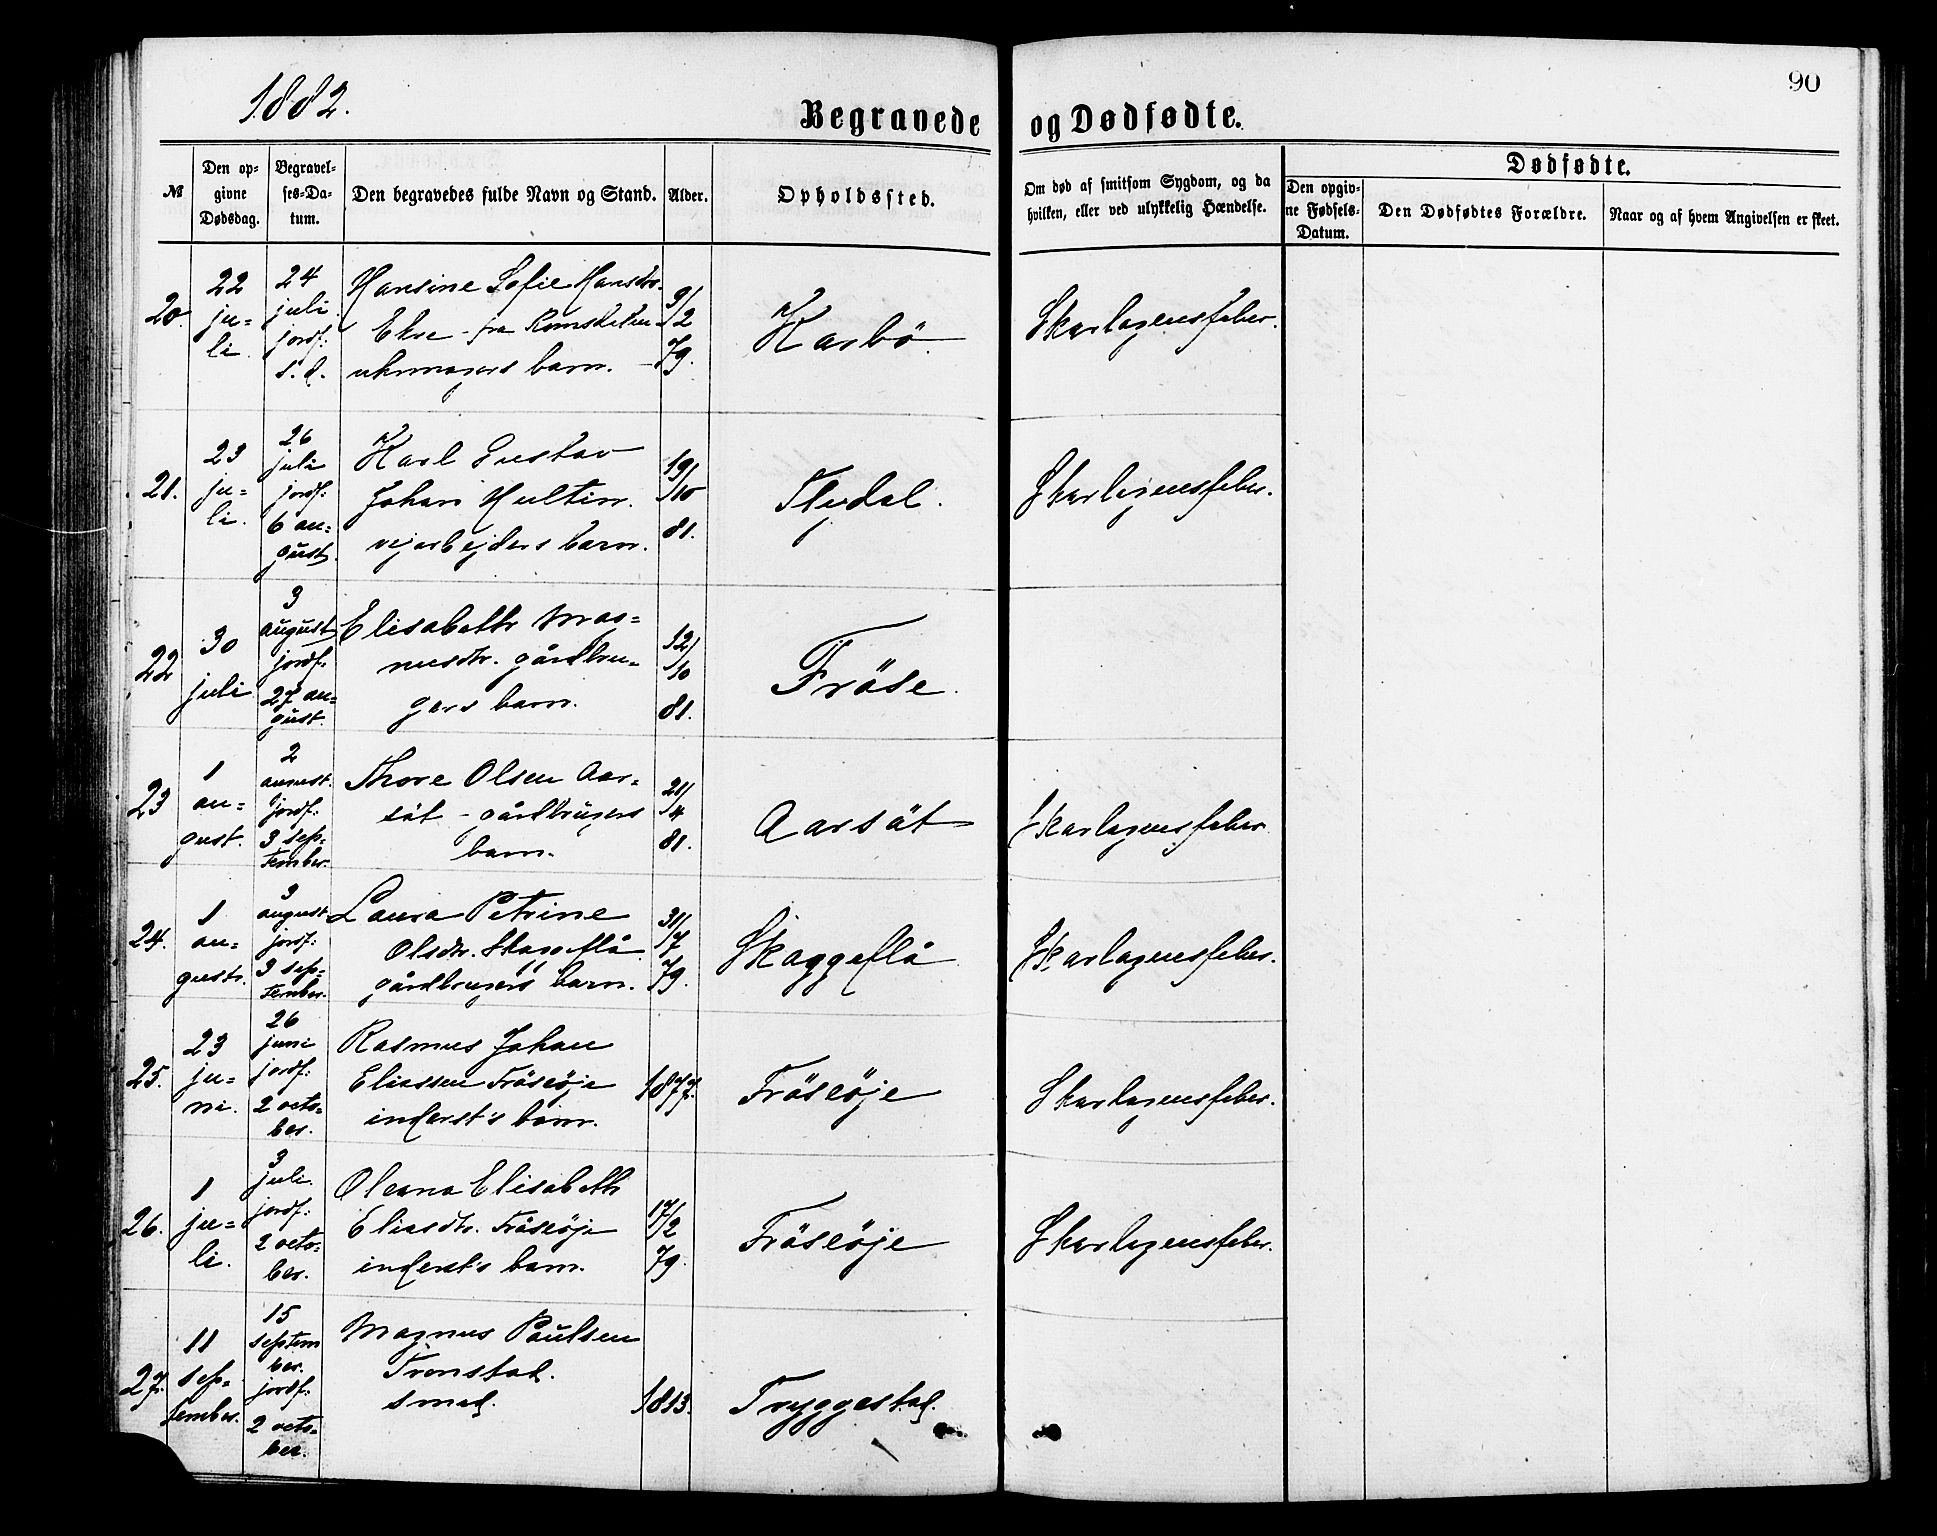 1882.
90
Begravede og Dødfødte.
№
Den op-
givne
Dødsdag.
Begravel-
ses-Da-
tum.
Den begravedes fulde Navn og Stand.
Alder.
Opholdssted.
Om død af smitsom Sygdom, og da
hvilken, eller ved ulykkelig Hændelse.
Dødfødte.
Den opgiv-
ne Fødsels-
Datum.
Den Dødfødtes Forældre.
Naar og af hvem Angivelsen er skeet.
20.
22
ju=
li.
24
juli
jordf:
s. d.
Hansine Sofie Hansdtr.
Ekre - fra Romsdalen
uhrmagers barn.
9/2
79.
Karbö.
Skarlagensfeber.
21.
23
ju=
li.
26
juli
jordf:
6 au=
gust.
Karl Gustav
Johan Hultin.
vejarbejders barn.
19/10
81.
Skarlagensfeber.
22
30
juli
3
august
jordf.
27 au=
gust.
Elisabeth Mag=
nusdtr. gårdbru=
gers barn.
12/10
81.
Fröse.
23
1
au=
gust.
2
august.
jordf:
3 sep=
tember.
Thore Olsen Aar=
söt - gårdbrugers
barn.
21/4
81.
Aarsöt
Skarlagensfeber
24.
1
au=
gust.
3
august
jordf:
3 sep=
tember.
Laura Petrine
Olsdtr. Skaggeflå
gårdbrugers barn.
31/7
79.
Skaggeflå
Skarlagensfeber.
25.
23
ju=
ni.
26
juni
jordf:
2 octo=
ber.
Rasmus Johan
Eliassen Fröseöje
inderst's barn.
1877.
Fröseöje
Skarlagensfeber.
26.
1
ju=
li.
3
juli.
jordf:
2 octo=
ber.
Oleana Elisabeth
Eliasdtr. Fröseöje
inderst's barn.
17/2
79.
Fröseöje
Skarlagensfeber.
27.
11
sep=
tember.
15
septem
ber.
jordf:
2 octo=
ber.
Magnus Paulsen
Tronstad.
smed.
1813.
Tryggestad.